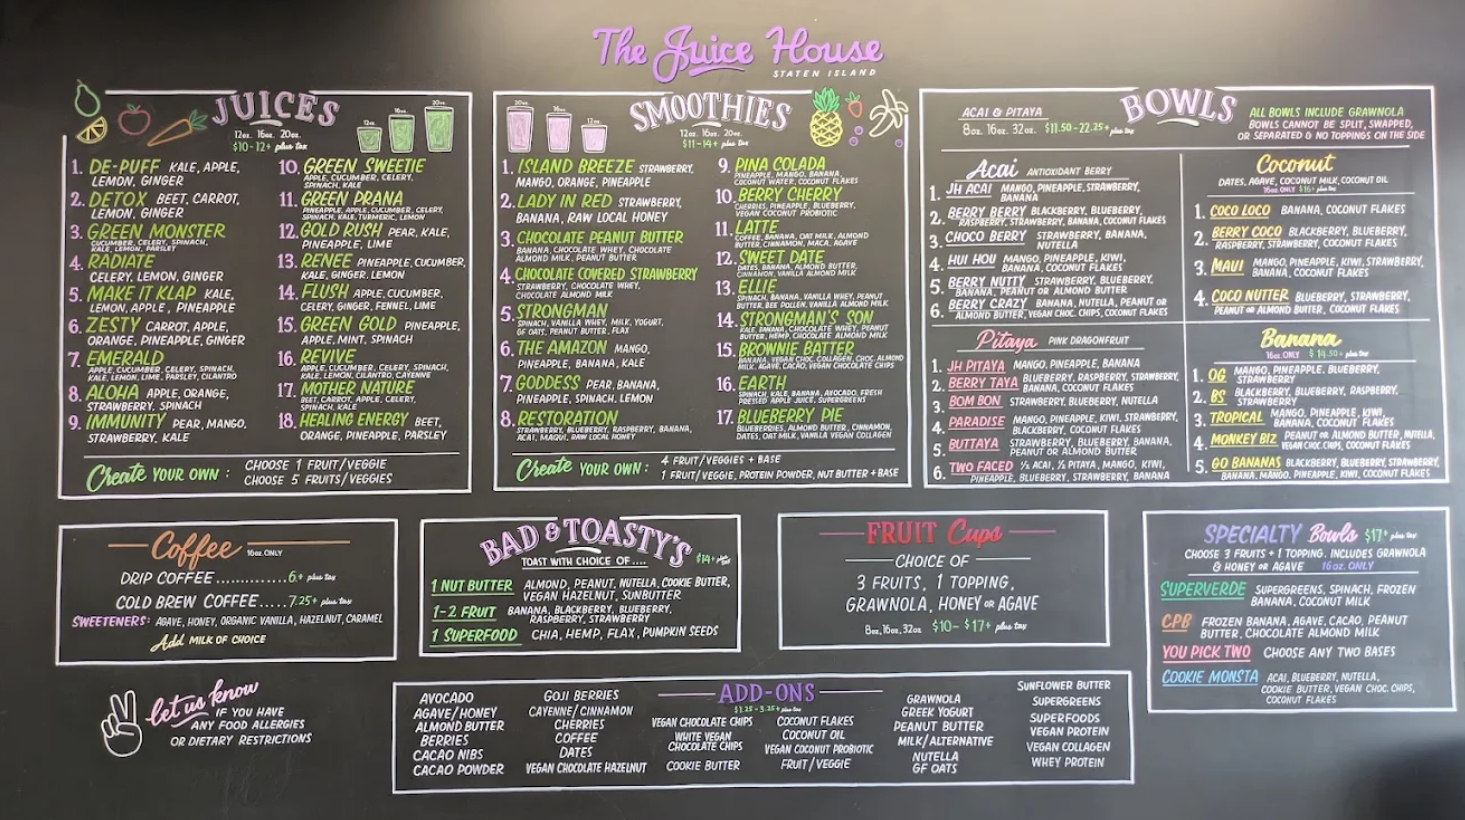 The Juice House
STATEN ISLAND
JUICES
12oz. 16oz. 20oz.
12oz. 16oz. 20oz.
$10-12+ plus tax
1. DE-PUFF KALE, APPLE,
LEMON, GINGER
2. DETOX BEET, CARROT,
LEMON, GINGER
3. GREEN MONSTER
CUCUMBER, CELERY, SPINACH,
KALE, LEMON, PARSLEY
4. RADIATE
CELERY, LEMON, GINGER
5. MAKE IT KLAP KALE,
LEMON, APPLE, PINEAPPLE
6. ZESTY CARROT, APPLE,
ORANGE, PINEAPPLE, GINGER
7. EMERALD
APPLE, CUCUMBER, CELERY, SPINACH,
KALE, LEMON, LIME, PARSLEY, CILANTRO
8. ALOHA APPLE, ORANGE,
STRAWBERRY, SPINACH
9. IMMUNITY PEAR, MANGO,
STRAWBERRY, KALE
10. GREEN SWEETIE
APPLE, CUCUMBER, CELERY,
SPINACH, KALE
11. GREEN PRANA
PINEAPPLE, APPLE, CUCUMBER, CELERY,
SPINACH, KALE, TURMERIC, LEMON
12. GOLD RUSH PEAR, KALE,
PINEAPPLE, LIME
13. RENEE PINEAPPLE, CUCUMBER,
KALE, GINGER, LEMON
14. FLUSH APPLE, CUCUMBER,
CELERY, GINGER, FENNEL, LIME
15. GREEN GOLD PINEAPPLE,
APPLE, MINT, SPINACH
16. REVIVE
APPLE, CUCUMBER, CELERY, SPINACH,
KALE, LEMON, CILANTRO, CAYENNE
17. MOTHER NATURE
BEET, CARROT, APPLE, CELERY,
SPINACH, KALE
18. HEALING ENERGY BEET,
ORANGE, PINEAPPLE, PARSLEY
Create YOUR OWN:
CHOOSE 1 FRUIT/VEGGIE
CHOOSE 5 FRUITS/VEGGIES
SMOOTHIES
20oz. 16oz. 12oz.
12oz. 16oz. 20oz.
$11-14+ plus tax
1. ISLAND BREEZE STRAWBERRY,
MANGO, ORANGE, PINEAPPLE
2. LADY IN RED STRAWBERRY,
BANANA, RAW LOCAL HONEY
3. CHOCOLATE PEANUT BUTTER
BANANA, CHOCOLATE WHEY, CHOCOLATE
ALMOND MILK, PEANUT BUTTER
4. CHOCOLATE COVERED STRAWBERRY
STRAWBERRY, CHOCOLATE WHEY,
CHOCOLATE ALMOND MILK
5. STRONGMAN
SPINACH, VANILLA WHEY, MILK, YOGURT,
GF OATS, PEANUT BUTTER, FLAX
6. THE AMAZON MANGO,
PINEAPPLE, BANANA, KALE
7. GODDESS PEAR, BANANA,
PINEAPPLE, SPINACH, LEMON
8. RESTORATION
STRAWBERRY, BLUEBERRY, RASPBERRY, BANANA,
ACAI, MAQUI, RAW LOCAL HONEY
9. PINA COLADA
PINEAPPLE, MANGO, BANANA,
COCONUT WATER, COCONUT FLAKES
10. BERRY CHERRY
CHERRIES, PINEAPPLE, BLUEBERRY,
VEGAN COCONUT PROBIOTIC
11. LATTE
COFFEE, BANANA, OAT MILK, ALMOND
BUTTER, CINNAMON, MACA, AGAVE
12. SWEET DATE
DATES, BANANA, ALMOND BUTTER,
CINNAMON, VANILLA ALMOND MILK
13. ELLIE
SPINACH, BANANA, VANILLA WHEY, PEANUT
BUTTER, BEE POLLEN, VANILLA ALMOND MILK
14. STRONGMAN'S SON
KALE, BANANA, CHOCOLATE WHEY, PEANUT
BUTTER, HEMP, CHOCOLATE ALMOND MILK
15. BROWNIE BATTER
BANANA, VEGAN CHOC. COLLAGEN, CHOC. ALMOND
MILK, AGAVE, CACAO, VEGAN CHOCOLATE CHIPS
16. EARTH
SPINACH, KALE, BANANA, AVOCADO, FRESH
PRESSED APPLE JUICE, SUPERGREENS
17. BLUEBERRY PIE
BLUEBERRIES, ALMOND BUTTER, CINNAMON,
DATES, OAT MILK, VANILLA VEGAN COLLAGEN
Create YOUR OWN:
4 FRUIT/VEGGIES + BASE
1 FRUIT/VEGGIE, PROTEIN POWDER, NUT BUTTER + BASE
BOWLS
ACAI & PITAYA
8oz. 16oz. 32oz. $11.50-22.25+ plus tax
ALL BOWLS INCLUDE GRAWNOLA
BOWLS CANNOT BE SPLIT, SWAPPED,
OR SEPARATED & NO TOPPINGS ON THE SIDE
Acai ANTIOXIDANT BERRY
1. JH ACAI MANGO, PINEAPPLE, STRAWBERRY,
BANANA
2. BERRY BERRY BLACKBERRY, BLUEBERRY,
RASPBERRY, STRAWBERRY, BANANA, COCONUT FLAKES
3. CHOCO BERRY STRAWBERRY, BANANA,
NUTELLA
4. HUI HOU MANGO, PINEAPPLE, KIWI,
BANANA, COCONUT FLAKES
5. BERRY NUTTY STRAWBERRY, BLUEBERRY,
BANANA, PEANUT OR ALMOND BUTTER
6. BERRY CRAZY BANANA, NUTELLA, PEANUT OR
ALMOND BUTTER, VEGAN CHOC. CHIPS, COCONUT FLAKES
Pitaya PINK DRAGONFRUIT
1. JH PITAYA MANGO, PINEAPPLE, BANANA
2. BERRY TAYA BLUEBERRY, RASPBERRY, STRAWBERRY,
BANANA, COCONUT FLAKES
3. BOM BON STRAWBERRY, BLUEBERRY, NUTELLA
4. PARADISE MANGO, PINEAPPLE, KIWI, STRAWBERRY,
BLACKBERRY, COCONUT FLAKES
5. BUTTAYA STRAWBERRY, BLUEBERRY, BANANA,
PEANUT OR ALMOND BUTTER
6. TWO FACED ½ ACAI, ½ PITAYA, MANGO, KIWI,
PINEAPPLE, BLUEBERRY, STRAWBERRY, BANANA
Coconut
DATES, AGAVE, COCONUT MILK, COCONUT OIL
16oz. ONLY $16+ plus tax
1. COCO LOCO BANANA, COCONUT FLAKES
2. BERRY COCO BLACKBERRY, BLUEBERRY,
RASPBERRY, STRAWBERRY, COCONUT FLAKES
3. MAUI MANGO, PINEAPPLE, KIWI, STRAWBERRY,
BANANA, COCONUT FLAKES
4. COCO NUTTER BLUEBERRY, STRAWBERRY,
PEANUT OR ALMOND BUTTER, COCONUT FLAKES
Banana
16oz. ONLY $14.50+ plus tax
1. OG MANGO, PINEAPPLE, BLUEBERRY,
STRAWBERRY
2. BS BLACKBERRY, BLUEBERRY, RASPBERRY,
STRAWBERRY
3. TROPICAL MANGO, PINEAPPLE, KIWI,
BANANA, COCONUT FLAKES
4. MONKEY BIZ PEANUT OR ALMOND BUTTER, NUTELLA,
VEGAN CHOC. CHIPS, COCONUT FLAKES
5. GO BANANAS BLACKBERRY, BLUEBERRY, STRAWBERRY,
BANANA, MANGO, PINEAPPLE, KIWI, COCONUT FLAKES
Coffee 16oz. ONLY
DRIP COFFEE.............6.+ plus tax
COLD BREW COFFEE.....7.25+ plus tax
SWEETENERS: AGAVE, HONEY, ORGANIC VANILLA, HAZELNUT, CARAMEL
Add MILK OF CHOICE
BAD & TOASTY'S
TOAST WITH CHOICE OF.... $14+ plus tax
1 NUT BUTTER ALMOND, PEANUT, NUTELLA, COOKIE BUTTER,
VEGAN HAZELNUT, SUNBUTTER
1-2 FRUIT BANANA, BLACKBERRY, BLUEBERRY,
RASPBERRY, STRAWBERRY
1 SUPERFOOD CHIA, HEMP, FLAX, PUMPKIN SEEDS
FRUIT Cups
CHOICE OF
3 FRUITS, 1 TOPPING,
GRAWNOLA, HONEY OR AGAVE
8oz, 16oz, 32oz $10-$17+ plus tax
SPECIALTY Bowls $17+ plus tax
CHOOSE 3 FRUITS + 1 TOPPING. INCLUDES GRAWNOLA
& HONEY OR AGAVE 16oz. ONLY
SUPERVERDE SUPERGREENS, SPINACH, FROZEN
BANANA, COCONUT MILK
CPB FROZEN BANANA, AGAVE, CACAO, PEANUT
BUTTER, CHOCOLATE ALMOND MILK
YOU PICK TWO CHOOSE ANY TWO BASES
COOKIE MONSTA ACAI, BLUEBERRY, NUTELLA,
COOKIE BUTTER, VEGAN CHOC. CHIPS,
COCONUT FLAKES
let us know
IF YOU HAVE
ANY FOOD ALLERGIES
OR DIETARY RESTRICTIONS
ADD-ONS
$1.25-3.25+ plus tax
AVOCADO
AGAVE/HONEY
ALMOND BUTTER
BERRIES
CACAO NIBS
CACAO POWDER
GOJI BERRIES
CAYENNE/CINNAMON
CHERRIES
COFFEE
DATES
VEGAN CHOCOLATE HAZELNUT
VEGAN CHOCOLATE CHIPS
WHITE VEGAN
CHOCOLATE CHIPS
COOKIE BUTTER
COCONUT FLAKES
COCONUT OIL
VEGAN COCONUT PROBIOTIC
FRUIT/VEGGIE
GRAWNOLA
GREEK YOGURT
PEANUT BUTTER
MILK/ALTERNATIVE
NUTELLA
GF OATS
SUNFLOWER BUTTER
SUPERGREENS
SUPERFOODS
VEGAN PROTEIN
VEGAN COLLAGEN
WHEY PROTEIN